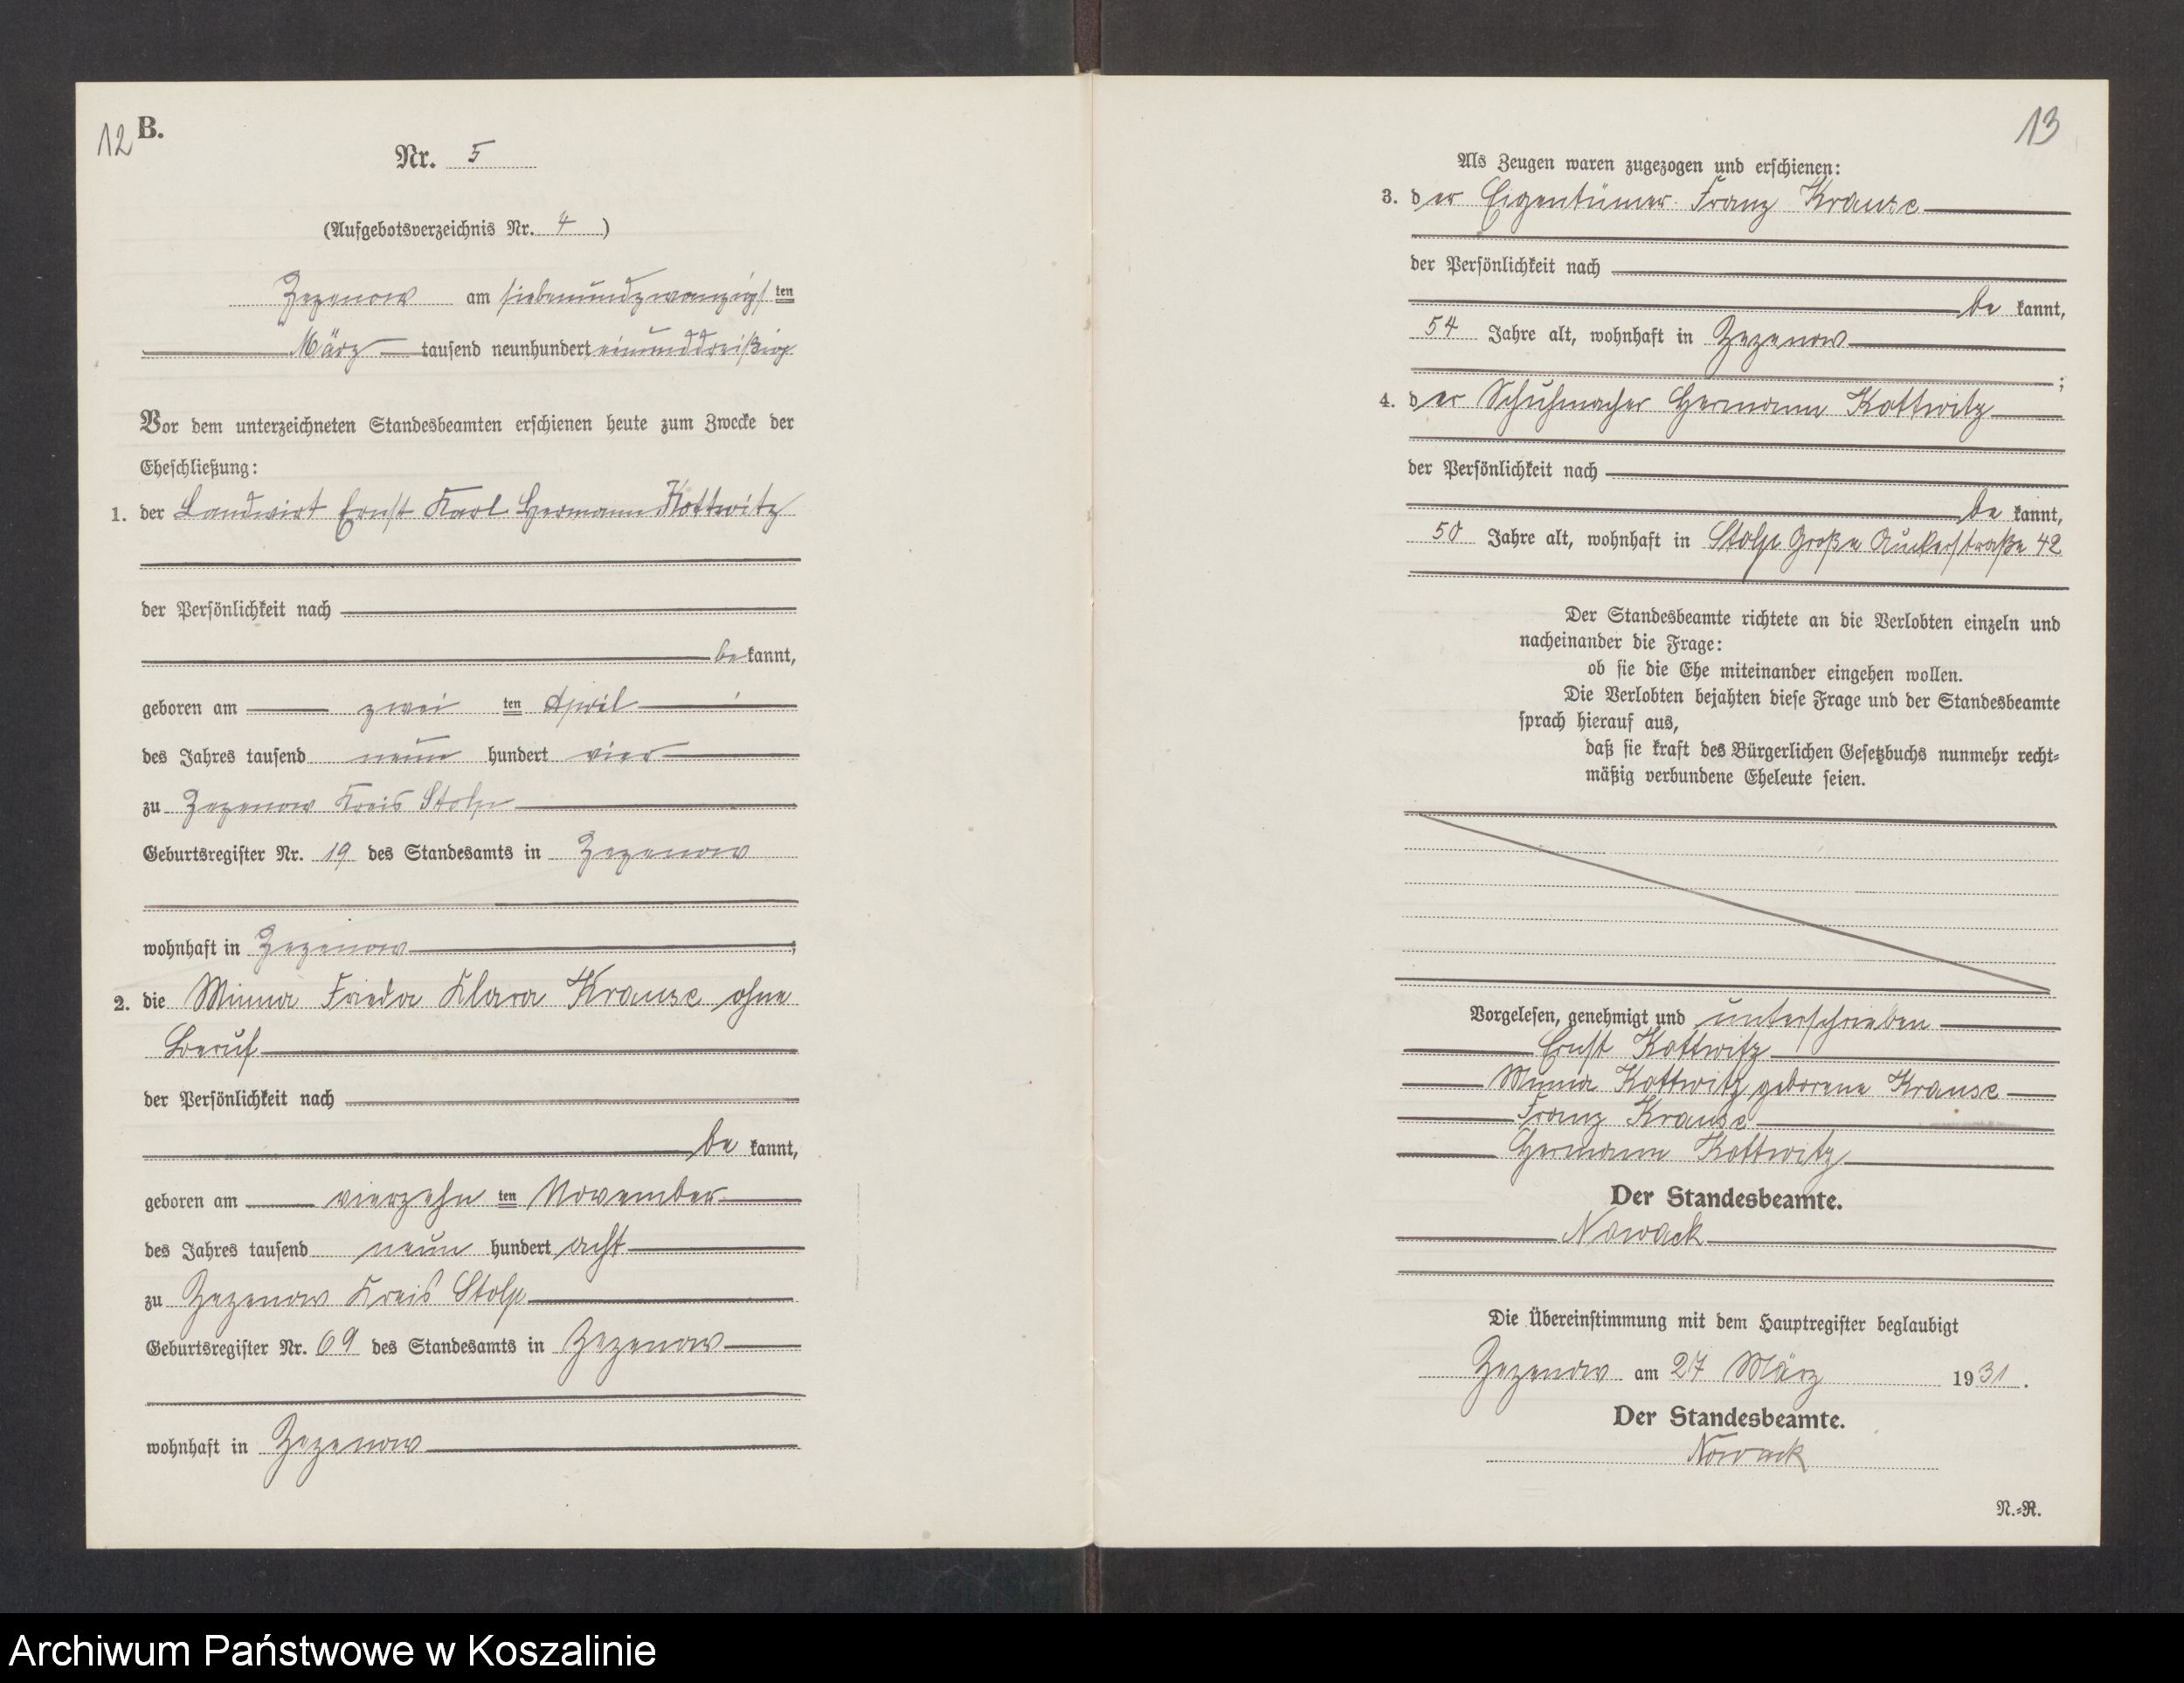 12 B.
Nr. 5
(Aufgebotsverzeichnis Nr. 4 )
Zezenow am siebenundzwanzigsten
März tausend neunhundert einunddreißig
Vor dem unterzeichneten Standesbeamten erschienen heute zum Zwecke der
Eheschließung:
1. der Landwirt Ernst Karl Hermann Kottwitz
der Persönlichkeit nach
bekannt,
geboren am zwei ten April
des Jahres tausend neun hundert vier
zu Zezenow Kreis Stolp
Geburtsregister Nr. 19 des Standesamts in Zezenow
wohnhaft in Zezenow ;
2. die Minna Frieda Klara Krause ohne
Beruf
der Persönlichkeit nach
be kannt,
geboren am vierzehn ten November
des Jahres tausend neun hundert acht
zu Zezenow Kreis Stolp
Geburtsregister Nr. 69 des Standesamts in Zezenow
wohnhaft in Zezenow
13
Als Zeugen waren zugezogen und erschienen:
3. der Eigentümer Franz Krause
der Persönlichkeit nach
be kannt,
54 Jahre alt, wohnhaft in Zezenow
;
4. der Schuhmacher Hermann Kottwitz
der Persönlichkeit nach
be kannt,
50 Jahre alt, wohnhaft in Stolp Große Auckerstraße 42
Der Standesbeamte richtete an die Verlobten einzeln und
nacheinander die Frage:
ob sie die Ehe miteinander eingehen wollen.
Die Verlobten bejahten diese Frage und der Standesbeamte
sprach hierauf aus,
daß sie kraft des Bürgerlichen Gesetzbuchs nunmehr recht-
mäßig verbundene Eheleute seien.
Vorgelesen, genehmigt und unterschrieben
Ernst Kottwitz
Minna Kottwitz geborene Krause
Franz Krause
Hermann Kottwitz
Der Standesbeamte.
Nowack
Die Übereinstimmung mit dem Hauptregister beglaubigt
Zezenow am 27 März 1931.
Der Standesbeamte.
Nowack
N.-R.
Archiwum Państwowe w Koszalinie